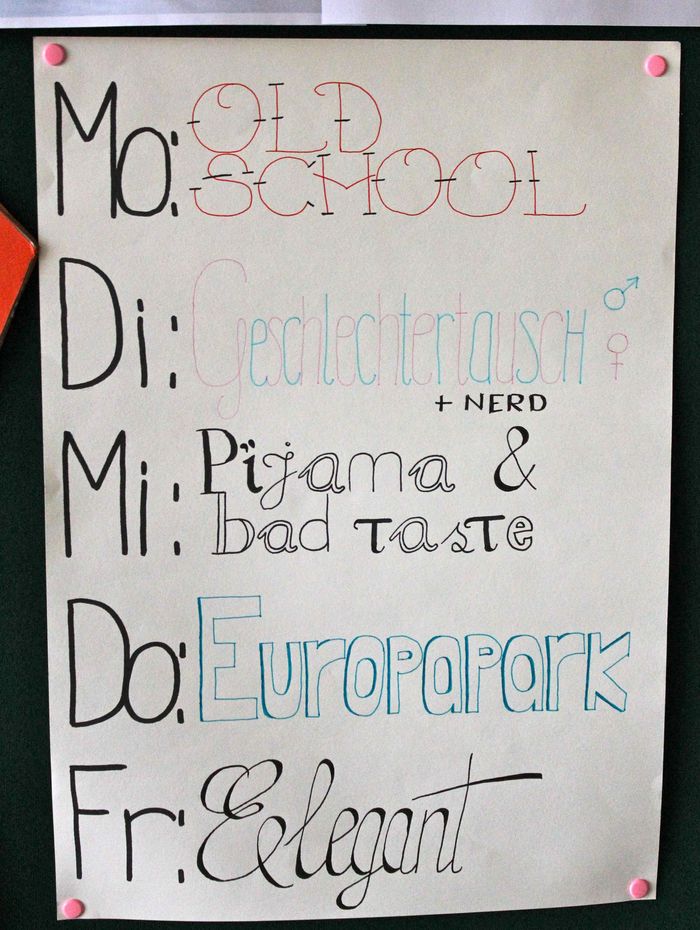 Mo: OLD
SCHOOL
Di: GeschlechtertauscH ♂ ♀
+ NERD
Mi: Pijama &
bad Taste
Do: Europapark
Fr: Elegant